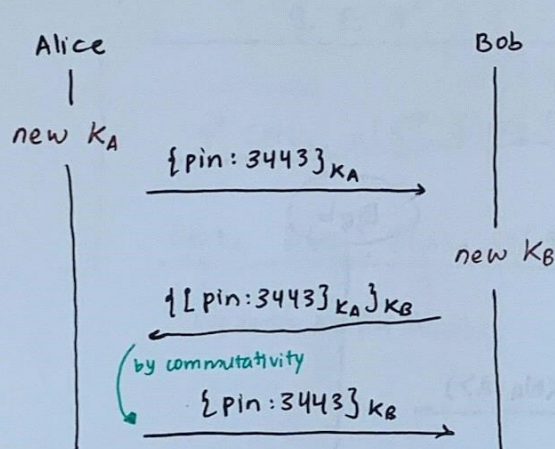 Alice Bob
new KA
{pin: 3443}KA
new KB
{[pin:3443}KA}KB
by commutativity
{pin:3443}KB